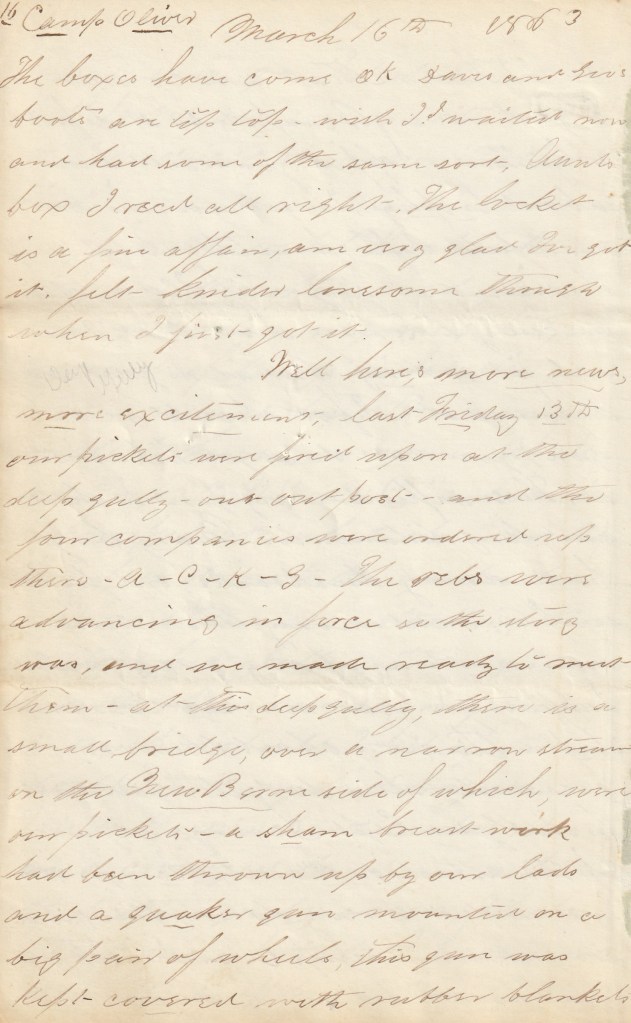 16 Camp Oliver March 16th 1863
The boxes have come OK Daves and Geos
boots are tip top - wish I'd waited now
and had some of the same sort, Aunts
box I recd all right. The locket
is a fine affair, am very glad I've got
it. felt kinder lonesome though
when I first got it.
Deep Gully
Well here's more news,
more excitement, last Friday 13th
our pickets were fired upon at the
deep gully - our out post - and the
four companies were ordered up
there - A - C - K - G - The rebs were
advancing in force so the story
was, and we made ready to meet
them - at this deep gully, there is a
small bridge, over a narrow stream
on the New Berne side of which, were
our pickets - a sham breast work
had been thrown up by our lads
and a quaker gun mounted on a
big pair of wheels, this gun was
kept covered with rubber blankets